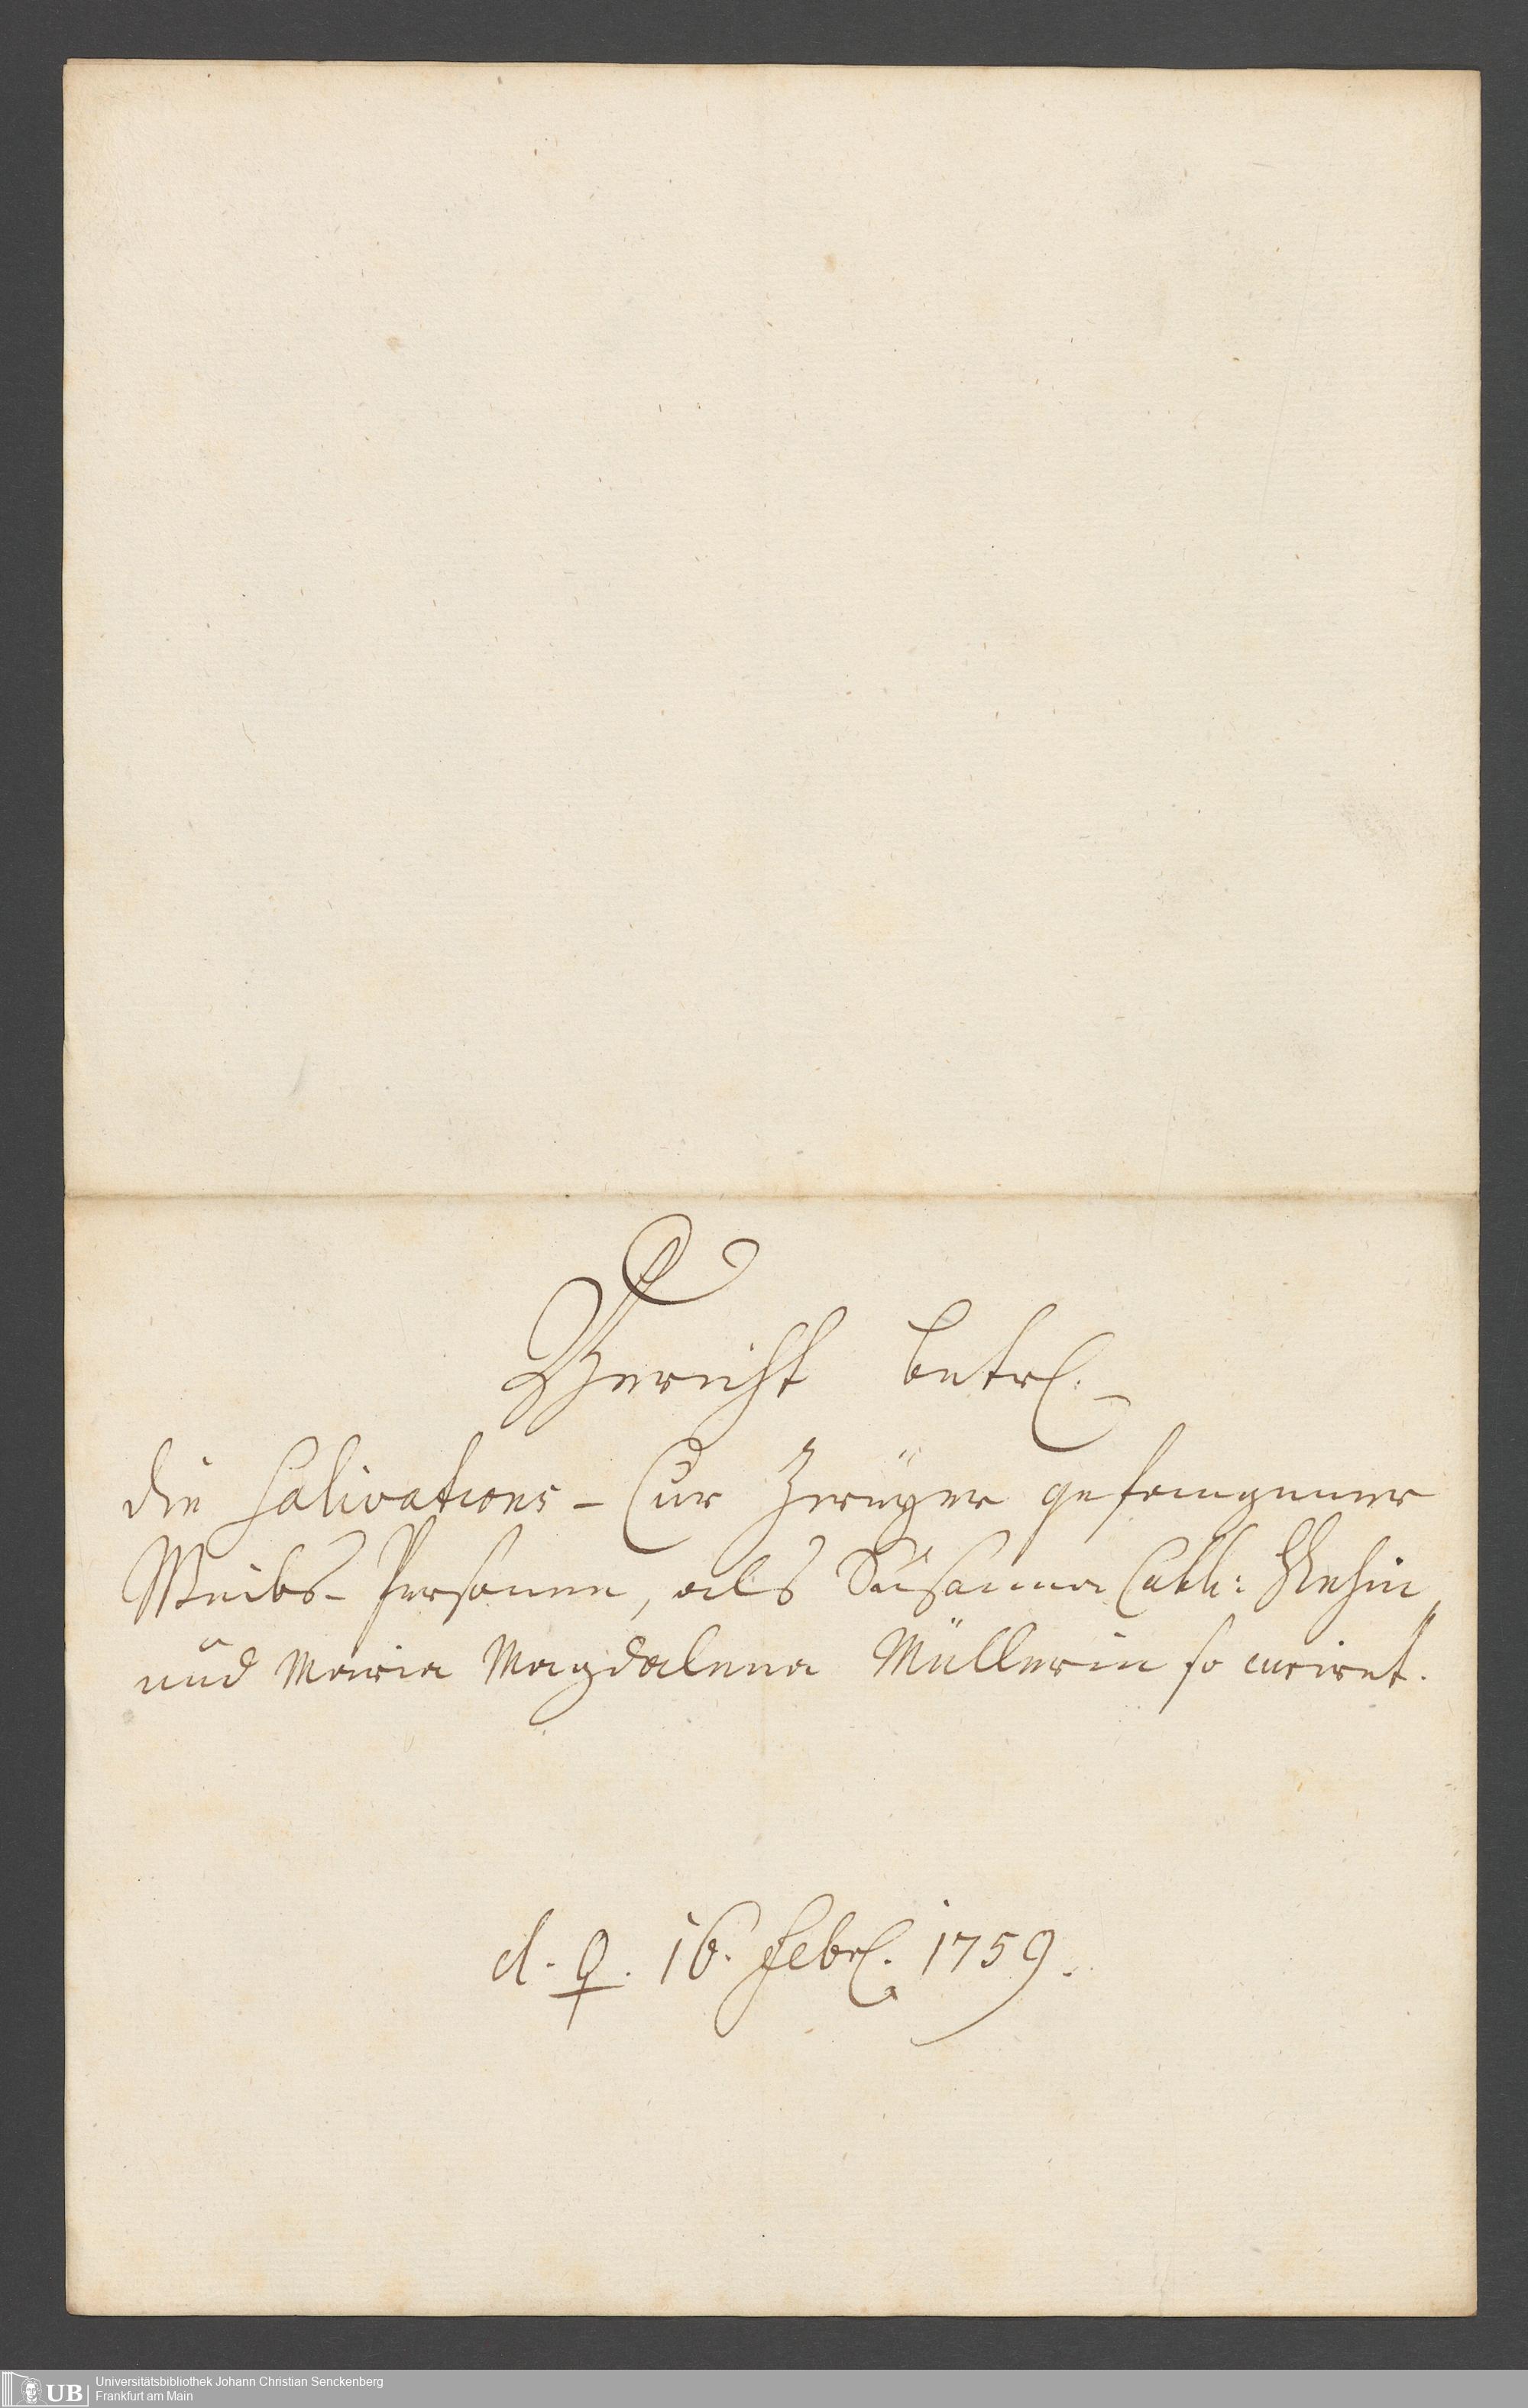 Bericht betrl:
die Salivations-Cur Zweÿer gefangener
Weibs-Personen, als Susanna Cath:
und Maria Magdalena Müllerin so curiret.
d. ♀. 16. Febrl. 1759.
UB
Universitätsbibliothek Johann Christian Senckenberg
Frankfurt am Main